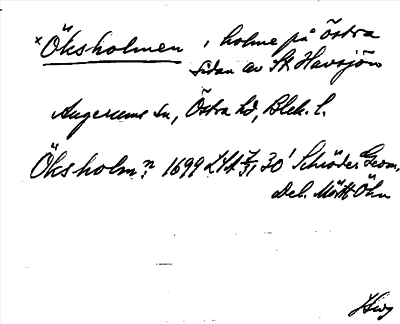 × Öksholmen, holme på östra
sidan av St Havsjön
Augerums sn, Östra hd, Blek. l.
Öksholmn: 1699 LSA 30 Schröder Geom.
Del. Mått Öhn